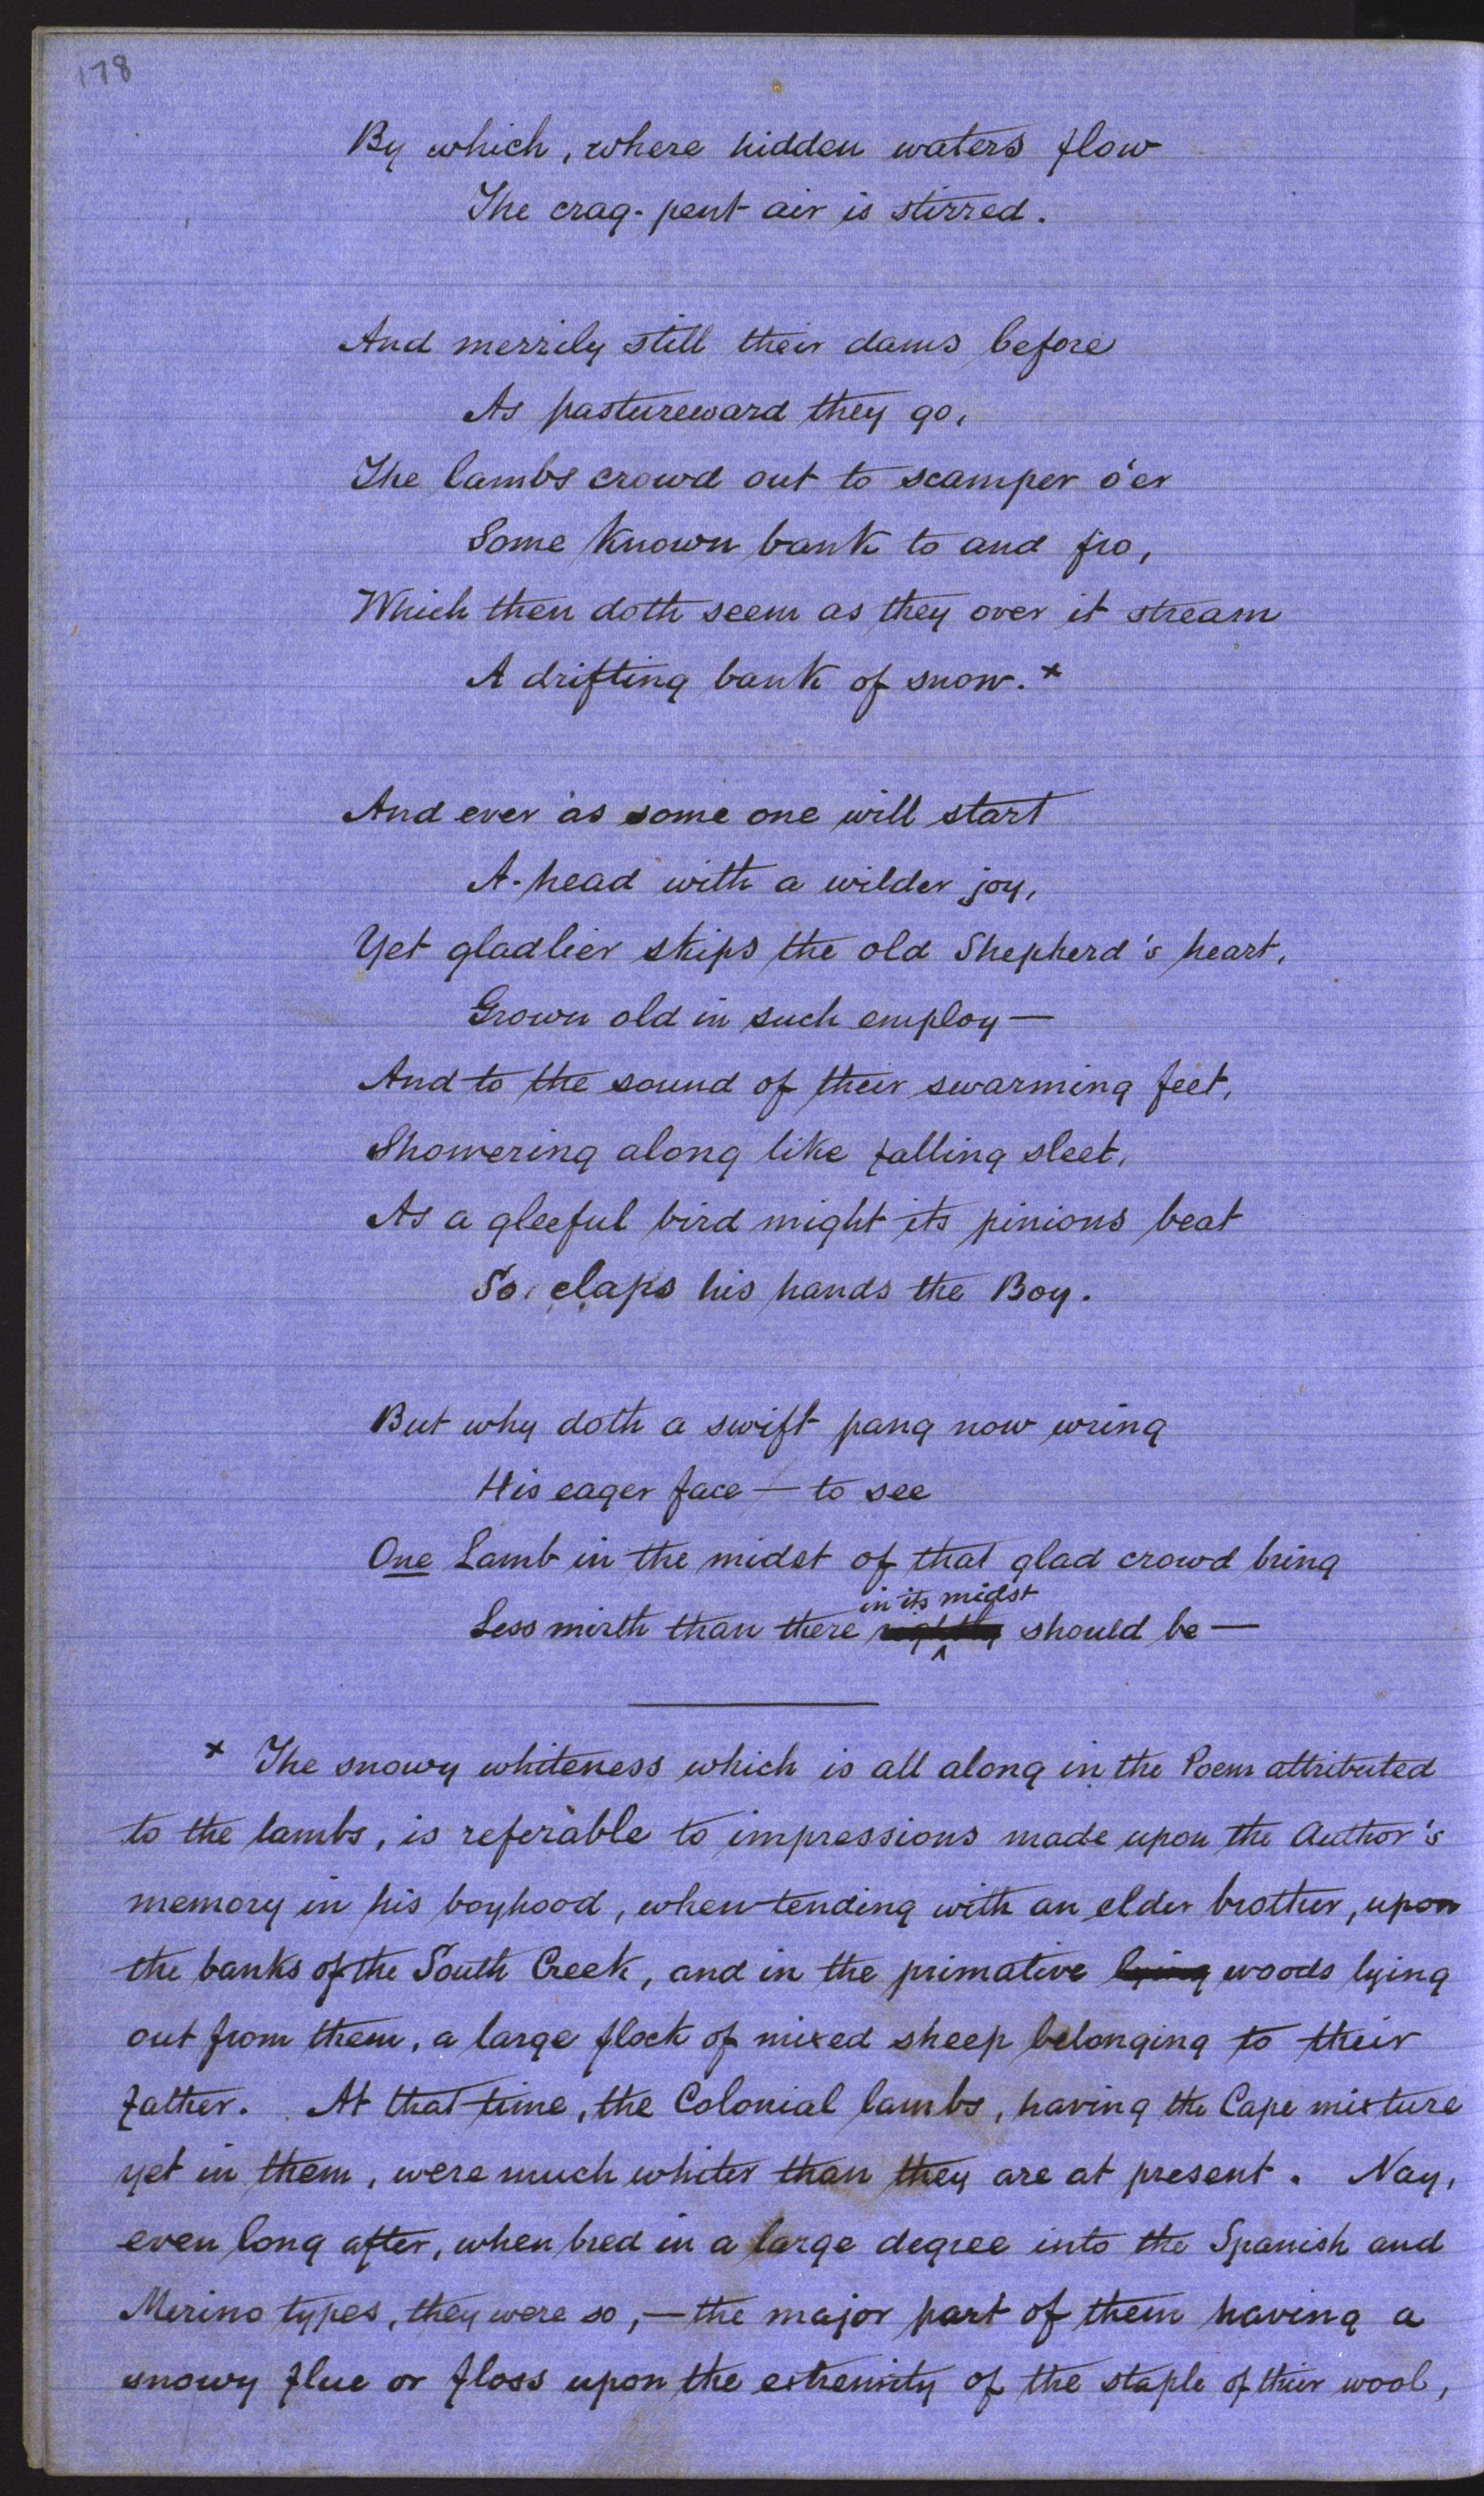 178
By which, where hidden waters flow
The crag-pent air is stirred.
And merrily still their dams before
As pastureward they go,
The lambs crowd out to scamper o'er
Some known bank to and fro,
Which then doth seem as they over it stream
A drifting bank of snow. x
And ever as some one will start
A-head with a wilder joy,
Yet gladlier skips the old Shepherd's heart,
Grown old in such employ —
And to the sound of their swarming feet,
Showering along like falling sleet,
As a gleeful bird might its pinions beat
So claps his hands the Boy.
But why doth a swift pang now wring
His eager face — to see
One Lamb in the midst of that glad crowd bring
in its midst
Less mirth than there should be —
x The snowy whiteness which is all along in the Poem attributed
to the lambs, is referable to impressions made upon the Author's
memory in his boyhood, when tending with an elder brother, upon
the banks of the South Creek, and in the primative lying woods lying
out from them, a large flock of mixed sheep belonging to their
father. At that time, the Colonial lambs, having the Cape mixture
yet in them, were much whiter than they are at present. Nay,
even long after, when bred in a large degree into the Spanish and
Merino types, they were so, — the major part of them having a
snowy flue or floss upon the extremity of the staple of their wool,